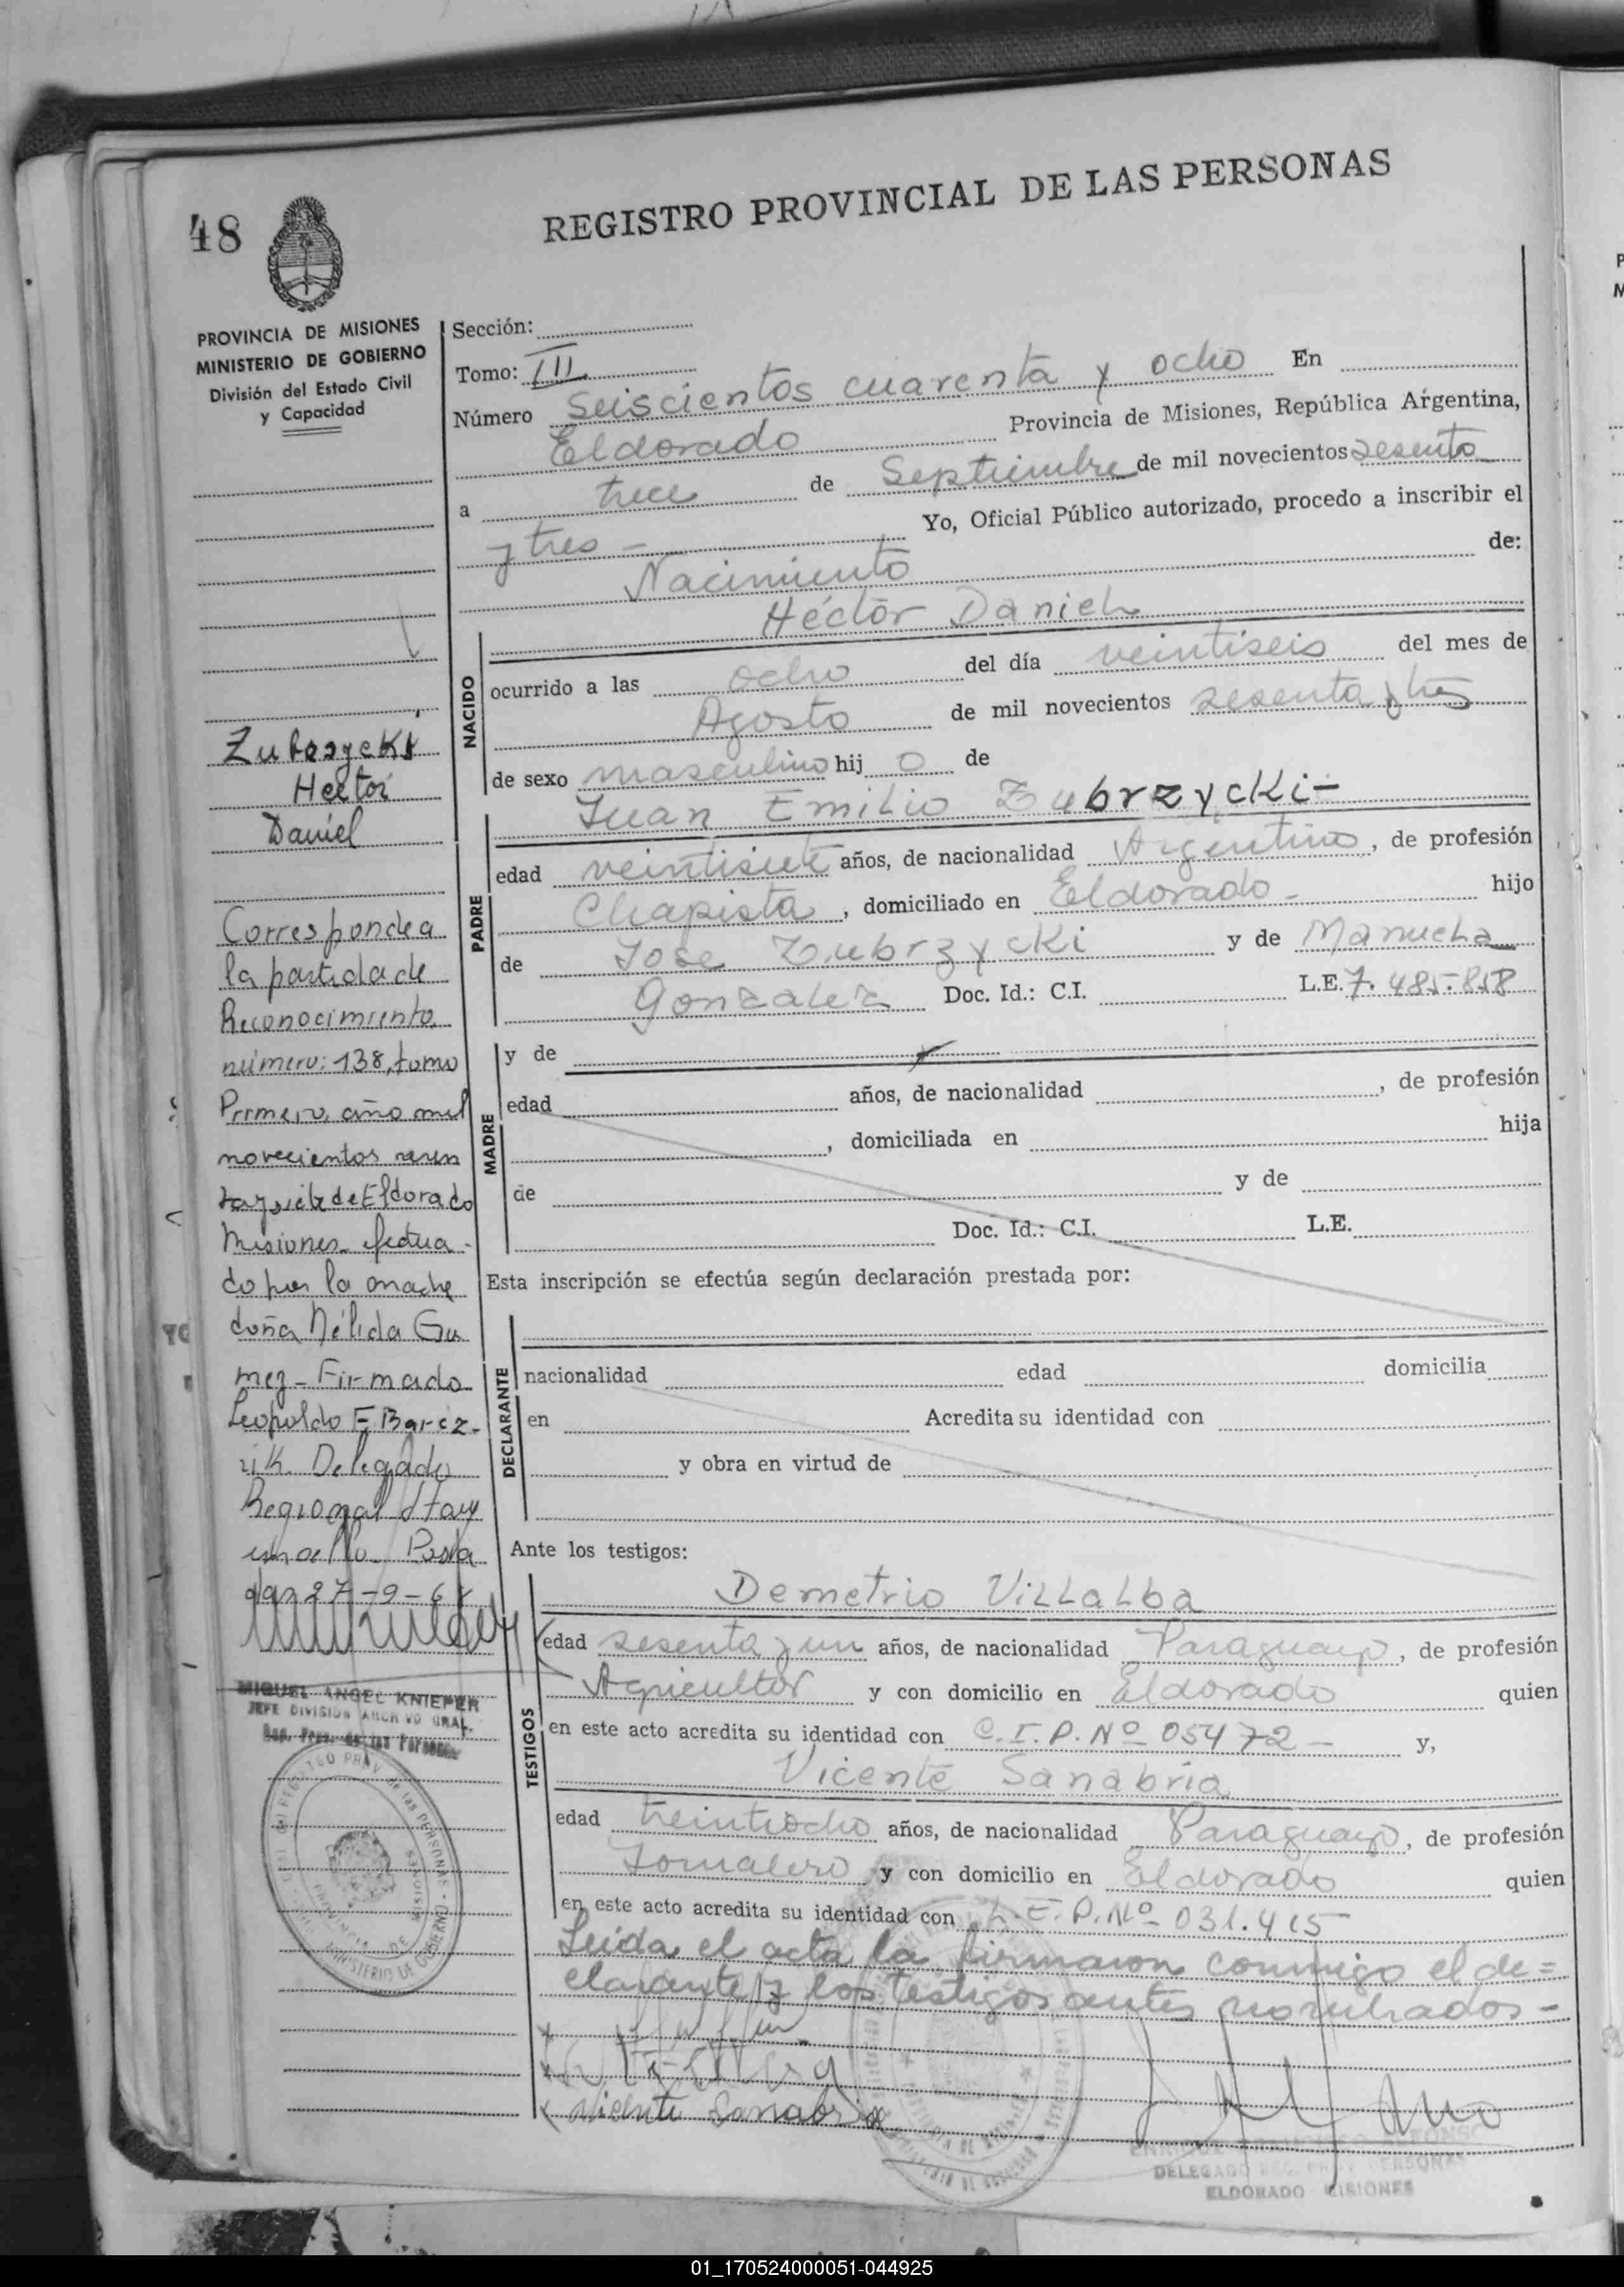 48
REGISTRO PROVINCIAL DE LAS PERSONAS
PROVINCIA DE MISIONES
MINISTERIO DE GOBIERNO
División del Estado Civil
y Capacidad
Zubrzycki
Hector
Daniel
Corresponde a
la partida de
Reconocimiento
número: 138, tomo
Primero, año mil
novecientos sesen
ta y siete de Eldorado
Misiones efectua-
do por la madre
doña Nélida Gó
mez - Firmado
Leopoldo F. Barcz-
uk. Delegado
Regional
Posa
das 27-9-6
MIGUEL ANGEL KNIEPER
JEFE DIVISION ARCHIVO GRAL.
Reg. Prov. de las Personas
Sección:
Tomo: III
Número Seiscientos cuarenta y ocho En
Eldorado Provincia de Misiones, República Argentina,
a trece de Septiembre de mil novecientos sesenta
y tres - Yo, Oficial Público autorizado, procedo a inscribir el
Nacimiento de:
NACIDO
Héctor Daniel
ocurrido a las ocho del día veintiseis del mes de
Agosto de mil novecientos sesenta y tres
de sexo masculino hij o de
PADRE
Juan Emilio Zubrzycki-
edad veintisiete años, de nacionalidad Argentino, de profesión
Chapista, domiciliado en Eldorado - hijo
de Jose Zubrzycki y de Manucha
Gonzalez Doc. Id.: C.I. L.E. 7.485.858
MADRE
y de
edad años, de nacionalidad , de profesión
, domiciliada en hija
de y de
Doc. Id.: C.I. L.E.
Esta inscripción se efectúa según declaración prestada por:
DECLARANTE
nacionalidad edad domicilia
en Acredita su identidad con
y obra en virtud de
Ante los testigos:
TESTIGOS
Demetrio Villalba
edad sesenta y un años, de nacionalidad Paraguayo, de profesión
Agricultor y con domicilio en Eldorado quien
en este acto acredita su identidad con C.I.P. Nº 05472 - y,
Vicente Sanabria
edad treintiocho años, de nacionalidad Paraguayo, de profesión
Jornalero y con domicilio en Eldorado quien
en este acto acredita su identidad con L.E.P. Nº 031.415
Leida el acta la firmaron conmigo el de=
clarante y los testigos antes nombrados -
Vicente Sanabria
DELEGADO REG. PROV. PERSONAS
ELDORADO MISIONES
01_170524000051-044925